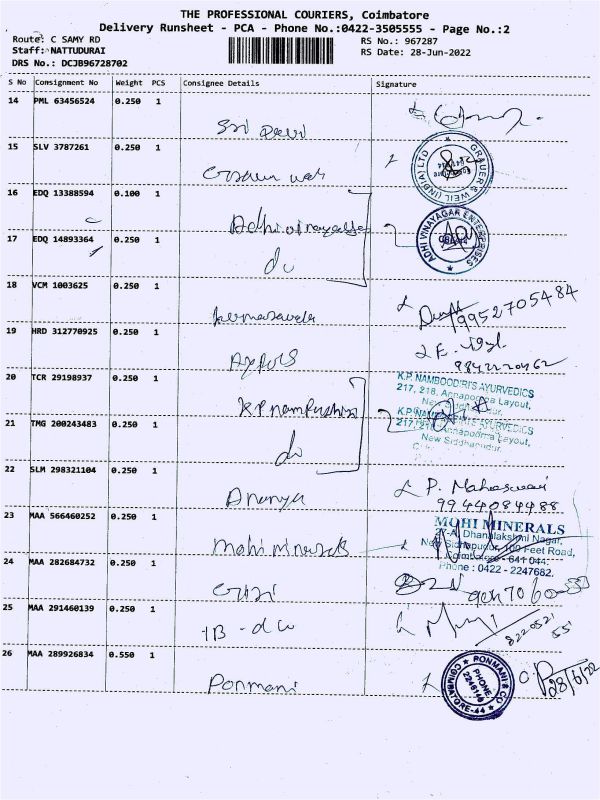 THE PROFESSIONAL COURIERS, Coimbatore
Delivery Runsheet - PCA - Phone No.:0422-3505555 - Page No.:2
Route: C SAMY RD
RS No.: 967287
Staff: NATTUDURAI
RS Date: 28-Jun-2022
DRS No.: DCJB96728702
S No Consignment No Weight PCS Consignee Details Signature
14 PML 63456524 0.250 1
Sri Devi
15 SLV 3787261 0.250 1
GRAUER & WEIL (INDIA) LTD
16 EDQ 13388594 0.100 1
Adhi vinayaga
ADHI VINAYAGAR ENTERPRISES
17 EDQ 14893364 0.250 1
do
18 VCM 1003625 0.250 1
9952705484
19 HRD 312770925 0.250 1
9842220462
20 TCR 29198937 0.250 1
K.P. NAMBOODIRI'S AYURVEDICS
217, 218, Annapoorna Layout,
21 TMG 200243483 0.250 1
K.P. AYURVEDICS
217, 218, Annapoorna Layout,
New Siddhapudur,
do
22 SLM 298321104 0.250 1
Ananya
P. Maheswari
9944084488
23 MAA 566460252 0.250 1
Mohi minerals
MOHI MINERALS
27-A, Dhanalakshmi Nagar,
New Sidhapudur, 100 Feet Road,
Coimbatore - 641 044.
Phone : 0422 - 2247682.
24 MAA 282684732 0.250 1
25 MAA 291460139 0.250 1
26 MAA 289926834 0.550 1
Ponmani
PONMANI & CO
PHONE
COIMBATORE-44
28/6/22